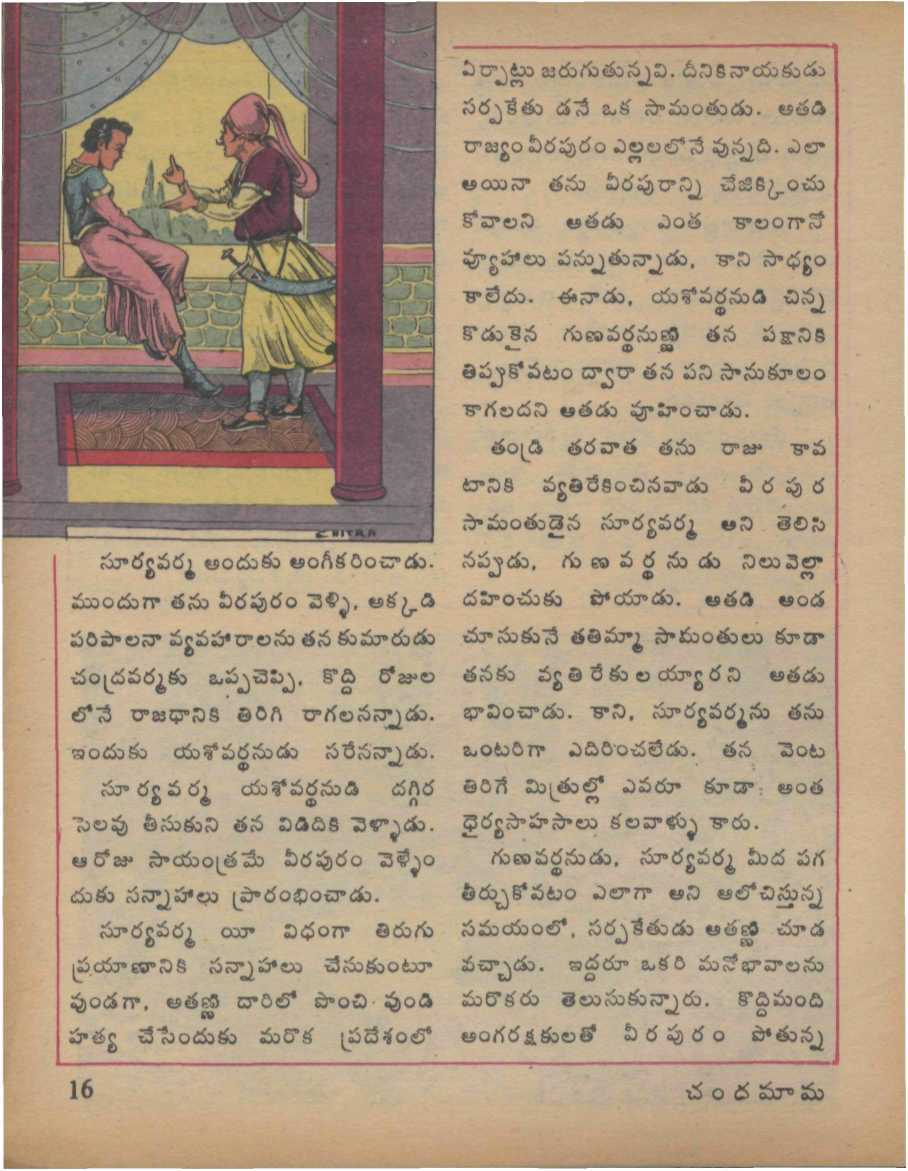 CHITRA
సూర్యవర్మ అందుకు అంగీకరించాడు.
ముందుగా తను వీరపురం వెళ్ళి, అక్కడి
పరిపాలనా వ్యవహారాలను తన కుమారుడు
చంద్రవర్మకు ఒప్పచెప్పి, కొద్ది రోజుల
లోనే రాజధానికి తిరిగి రాగలనన్నాడు.
ఇందుకు యశోవర్థనుడు సరేనన్నాడు.
సూర్యవర్మ యశోవర్థనుడి దగ్గిర
సెలవు తీసుకుని తన విడిదికి వెళ్ళాడు.
ఆరోజు సాయంత్రమే వీరపురం వెళ్ళేం
దుకు సన్నాహాలు ప్రారంభించాడు.
సూర్యవర్మ యీ విధంగా తిరుగు
ప్రయాణానికి సన్నాహాలు చేసుకుంటూ
వుండగా, అతణ్ణి దారిలో పొంచి వుండి
హత్య చేసేందుకు మరొక ప్రదేశంలో
ఏర్పాట్లు జరుగుతున్నవి. దీనికినాయకుడు
సర్పకేతు డనే ఒక సామంతుడు. అతడి
రాజ్యం వీరపురం ఎల్లలలోనే వున్నది. ఎలా
అయినా తను వీరపురాన్ని చేజిక్కించు
కోవాలని అతడు ఎంత కాలంగానో
వ్యూహాలు పన్నుతున్నాడు, కాని సాధ్యం
కాలేదు. ఈనాడు, యశోవర్థనుడి చిన్న
కొడుకైన గుణవర్థనుణ్ణి తన పక్షానికి
తిప్పుకోవటం ద్వారా తన పని సానుకూలం
కాగలదని అతడు వూహించాడు.
తండ్రి తరవాత తను రాజు కావ
టానికి వ్యతిరేకించినవాడు వీరపుర
సామంతుడైన సూర్యవర్మ అని తెలిసి
నప్పుడు, గుణవర్థనుడు నిలువెల్లా
దహించుకు పోయాడు. అతడి అండ
చూసుకునే తతిమ్మా సామంతులు కూడా
తనకు వ్యతిరేకులయ్యారని అతడు
భావించాడు. కాని, సూర్యవర్మను తను
ఒంటరిగా ఎదిరించలేడు. తన వెంట
తిరిగే మిత్రుల్లో ఎవరూ కూడా అంత
ధైర్యసాహసాలు కలవాళ్ళు కారు.
గుణవర్థనుడు, సూర్యవర్మ మీద పగ
తీర్చుకోవటం ఎలాగా అని ఆలోచిస్తున్న
సమయంలో, సర్పకేతుడు అతణ్ణి చూడ
వచ్చాడు. ఇద్దరూ ఒకరి మనోభావాలను
మరొకరు తెలుసుకున్నారు. కొద్దిమంది
అంగరక్షకులతో వీరపురం పోతున్న
16
చందమామ